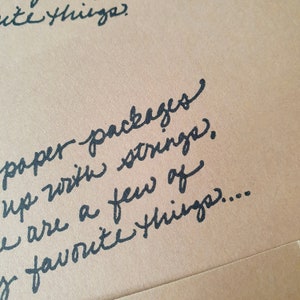 favorite things.
paper packages
up with strings,
are a few of
favorite things....